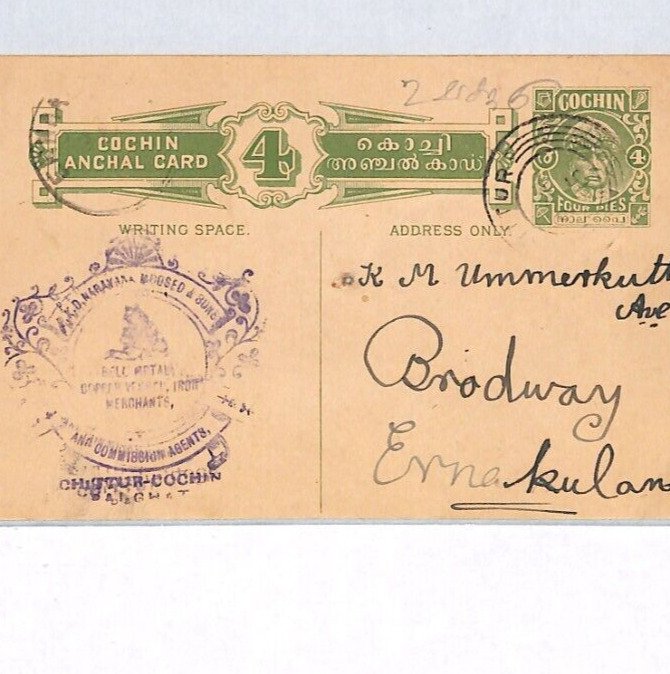 COCHIN
ANCHAL CARD
4
കൊച്ചി
അഞ്ചൽ കാഡ്
COCHIN
4
FOUR PIES
നാലു പൈ
WRITING SPACE.
ADDRESS ONLY.
NARAYANA MOOSED & SONS
BELL METAL,
COPPER VESSEL, IRON
MERCHANTS,
AND COMMISSION AGENTS,
CHITTUR-COCHIN
K M Ummerkutt
Ave
Brodway
Ernakulam